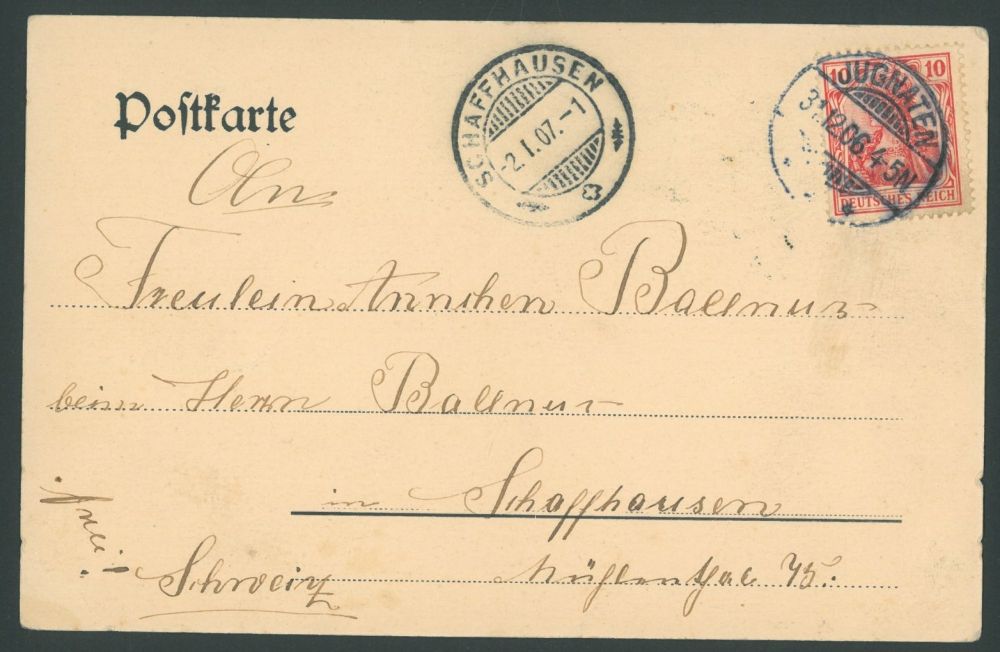 Postkarte
SCHAFFHAUSEN
-2.I.07.-1
JUGNATEN
31.12.06 4-5N
10 10
DEUTSCHES REICH
An
Freulein Annchen Ballnus
beim Herrn Ballnus
in Schaffhausen
Schweitz Mühlenthal 45.